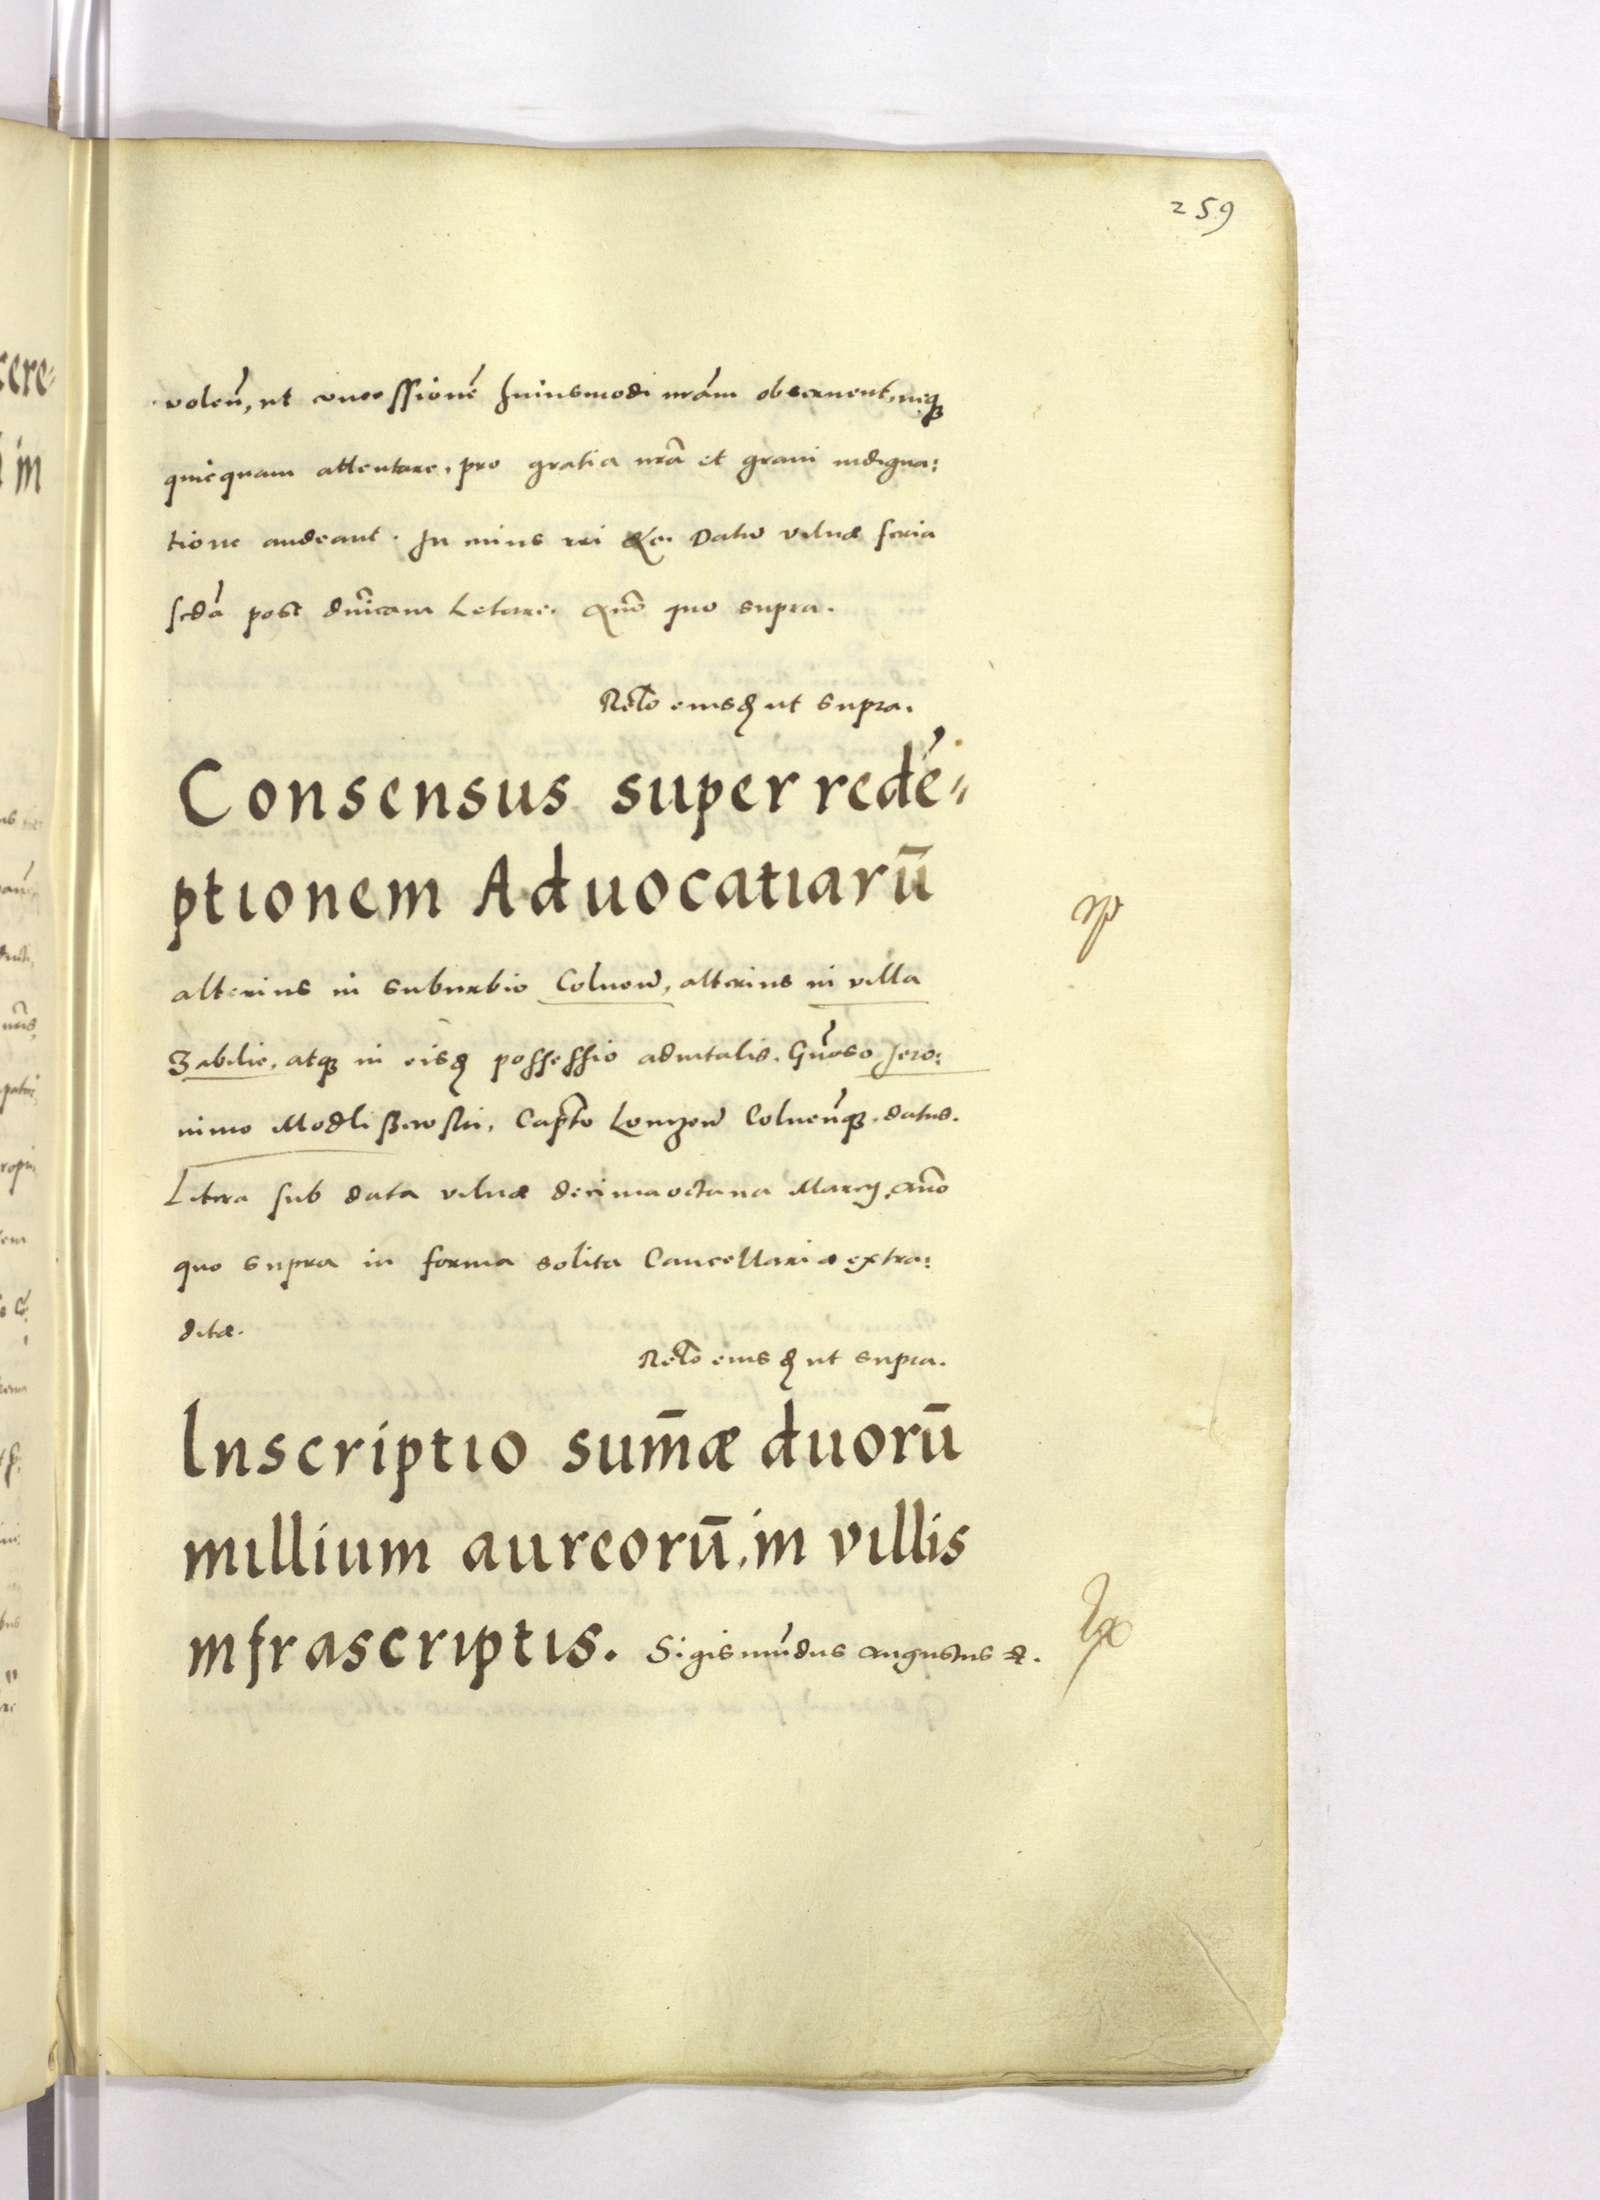 259
volen̄, ut concessionē huiusmodi nr̄am obseruent, neqꝫ
quicquam attentare, pro gratia nr̄a et graui indigna:
tione audeant. In cuius rei &c. Datū Vilnæ feria
scd̄a post dn̄icam Letare. Ann̄o quo supra.
Rel̄o eiusdꝫ ut supra.
Consensus super redē-
ptionem Aduocatiarū
alterius in suburbio Colnen̄, alterius in villa
Zabilie, atqꝫ in eisdꝫ possessio aduitalis. Gn̄oso Jero:
nimo Modliszewski, Cap̄to Lomzen̄ Colnen̄qꝫ. datus.
Litera sub data Vilnæ decimaoctaua Marcij, Ann̄o
quo supra in forma solita Cancellariæ extra:
ditæ.
Rel̄o eiusdꝫ ut supra.
Inscriptio sum̄æ duorū
millium aureorū, in villis
infrascriptis. Sigismūdus Augustus &.